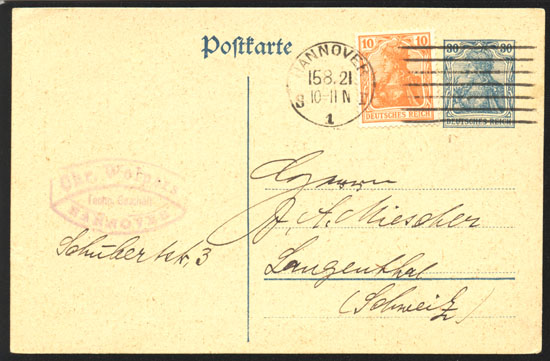 Postkarte
HANNOVER
15.8.21
10-11 N
S 1
1
10 10
DEUTSCHES REICH
30 30
DEUTSCHES REICH
Chr. Wolpers
Fachg. Geschäft
HANNOVER
Schubertstr. 3
Herrn
J. A. Miescher
Langenthal
(Schweiz)